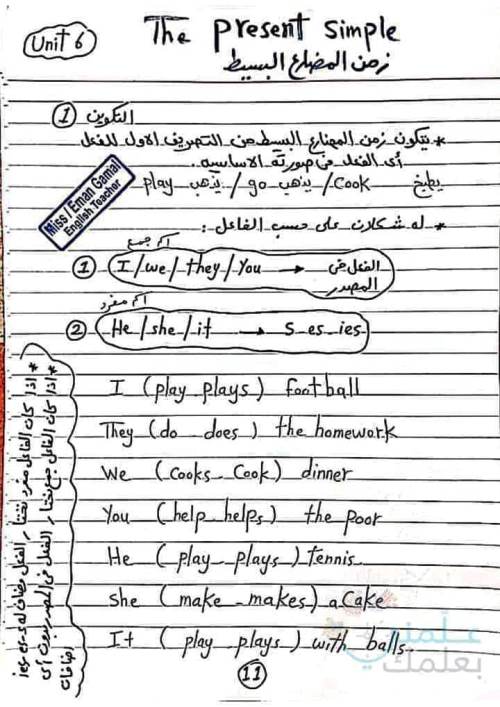 Unit 6
The Present Simple
زمن المضارع البسيط
① التكوين
* يتكون زمن المضارع البسيط من التصريف الاول للفعل
أى الفعل فى صورته الاساسيه.
play يذهب / go يذهب / Cook يطبخ
Miss / Eman Gamal
English Teacher
* له شكلان على حسب الفاعل:
اسم جمع
① I / we / they / You → الفعل فى المصدر
اسم مفرد
② He / she / it → S - es - ies
I (play - plays) football
They (do - does) the homework
We (Cooks - Cook) dinner
You (help - helps) the poor
He (play - plays) tennis
She (make - makes) a Cake
It (play - plays) with balls.
* اذا كان الفاعل جمع نختار الفعل فى المصدر بدون أى اضافات
* اذا كان الفاعل مفرد نختار الفعل مضاف له s - es - ies
علمني
بعلمك
11